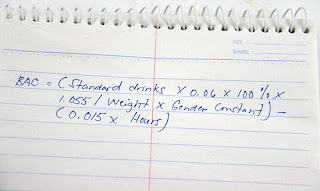 NO.
DATE:
BAC = (Standard drinks X 0.06 X 100% X
1.055 / Weight x Gender Constant) -
(0.015 x Hours)